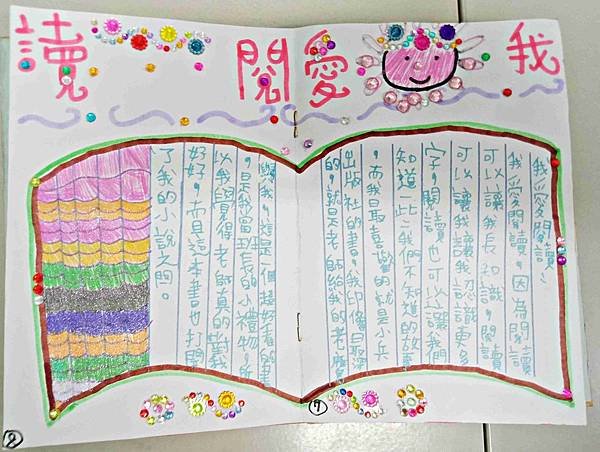 我愛閱讀
我愛閱讀、
我愛閱讀,因為閱讀
可以讓我長知識,閱讀
可以讓我讓我認識更多
字,閱讀也可以讓我們
知道一些我們不知道的故事
,而我最喜歡的就是小兵
出版社的書,我印像最深
的,就是老師給我的老
我,這是一個超好看的書
,是我當班長的小禮物,所
以我覺得老師真的對我
好好,而且這本書也打開
了我的小說之門。
7
8